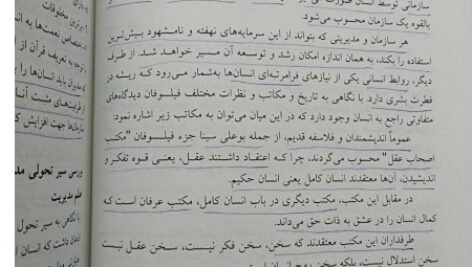 سازمانی توسط انسان صورت
بالقوه یک سازمان محسوب می‌شود.
هر سازمان و مدیریتی که بتواند از این سرمایه‌های نهفته و نامشهود بیش‌ترین
استفاده را بکند، به همان اندازه امکان رشد و توسعه آن مسیر خواهد شد. از طرف
دیگر، روابط انسانی یکی از نیازهای فرامرتبه‌ای انسان‌ها به‌شمار می‌رود که ریشه در
فطرت بشری دارد. با نگاهی به تاریخ و مکاتب و نظرات مختلف فیلسوفان دیدگاه‌های
متفاوتی راجع به انسان وجود دارد که در این میان می‌توان به مکاتب زیر اشاره نمود:
عموماً اندیشمندان و فلاسفه قدیم، از جمله بوعلی سینا جزء فیلسوفان "مکتب
اصحاب عقل" محسوب می‌گردند، چرا که اعتقاد داشتند عقل، یعنی قوه تفکر و
اندیشیدن، آن‌ها معتقدند انسان کامل یعنی انسان حکیم.
در مقابل این مکتب، مکتب دیگری در باب انسان کامل، مکتب عرفان است که
کمال انسان را در عشق به ذات حق می‌داند.
طرفداران این مکتب معتقدند که سخن، سخن فکر نیست، سخن عقل نیست
سخن استدلال نیست، بلکه سخن روح انسان است
مخلوقات
اختصاص نعمت‌ها به
توجه به تعریف قرآن از
که مدیران باید انسان‌ها را
ظرفیت‌های مثبت
سازمان‌ها جهت افزایش
بررسی سیر تحولی
علم مدیریت
با نگاهی به سیر تحول
اذعان داشت که انسان